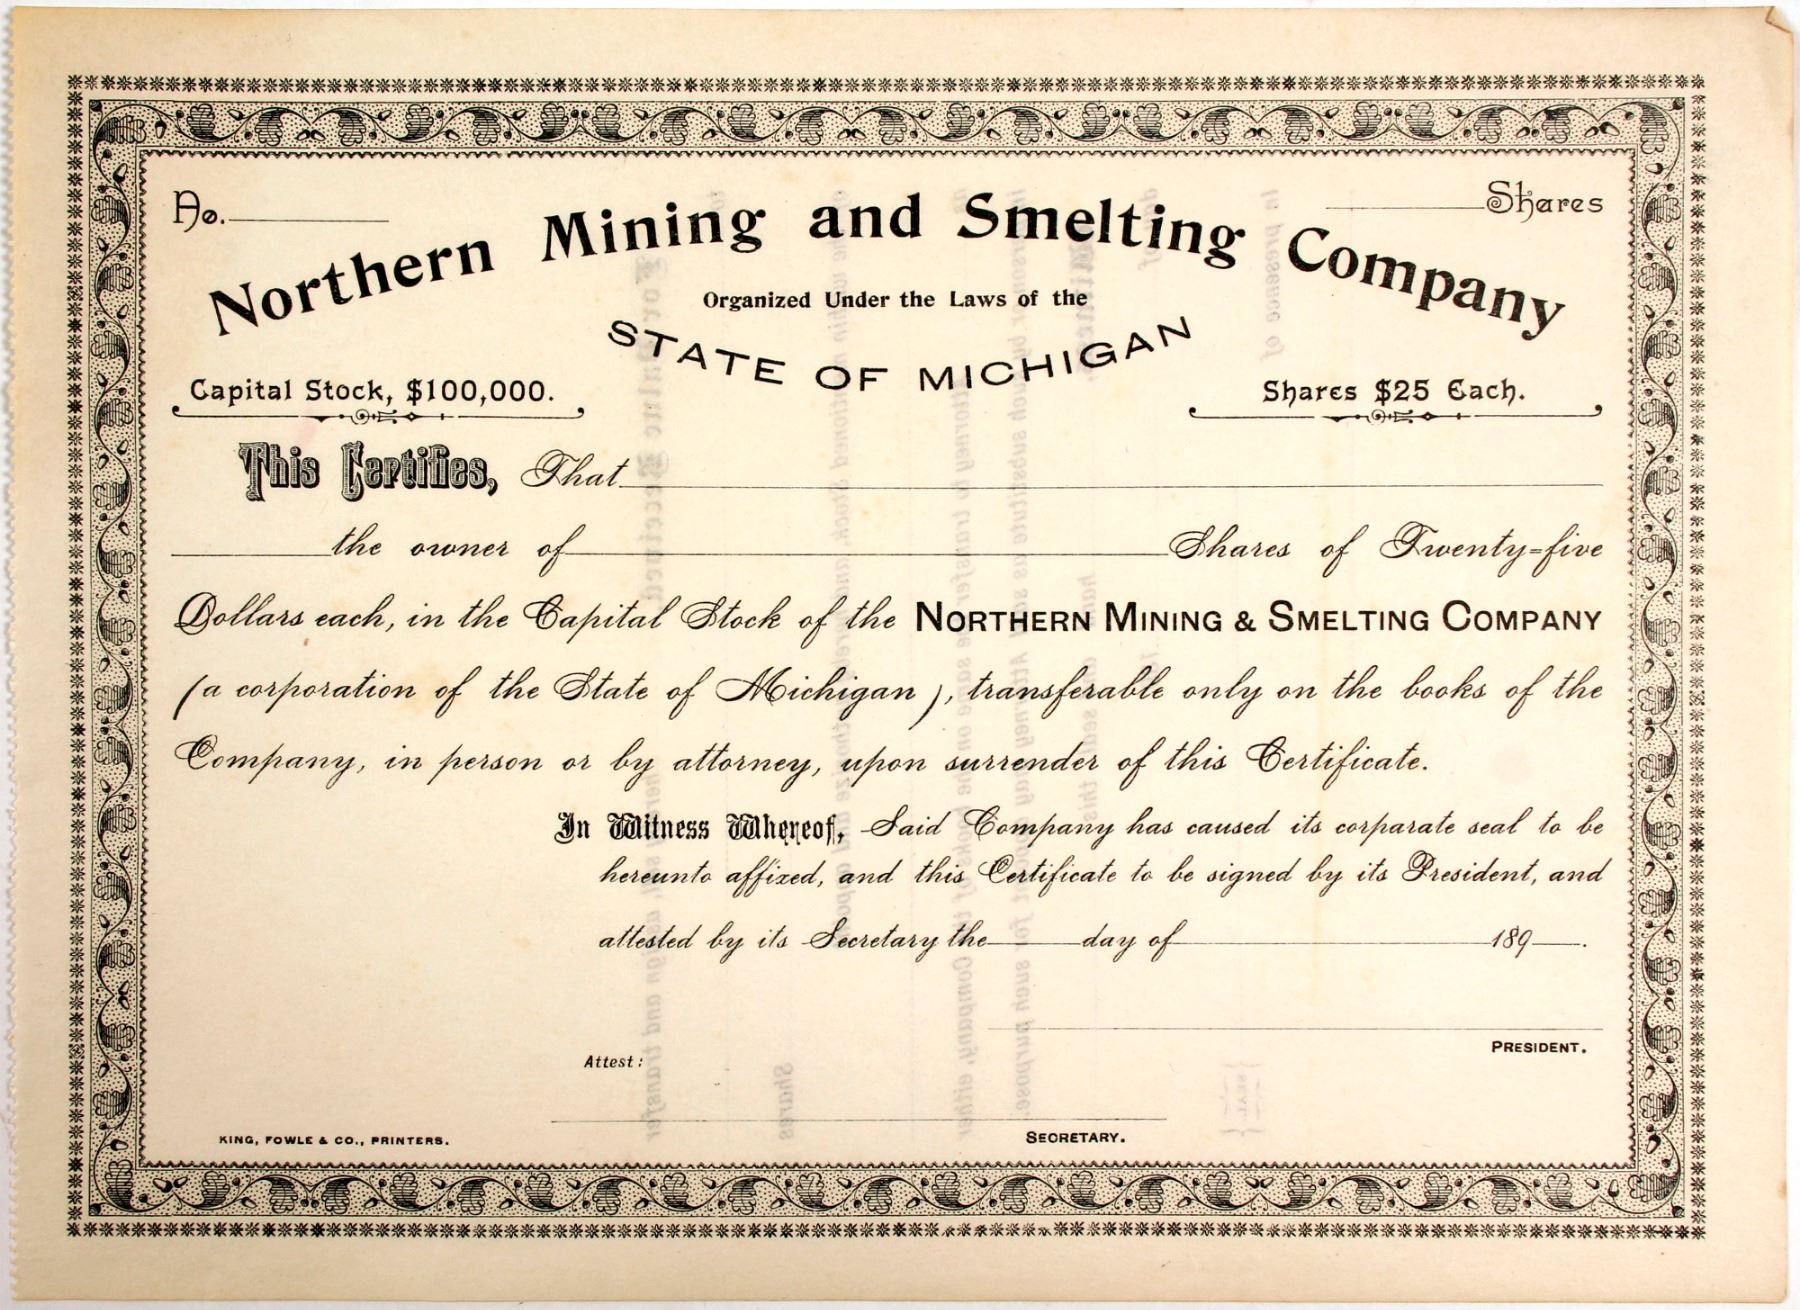 No. Shares
Northern Mining and Smelting Company
Organized Under the Laws of the
STATE OF MICHIGAN
Capital Stock, $100,000. Shares $25 Each.
This Certifies, That
the owner of Shares of Twenty-five
Dollars each, in the Capital Stock of the NORTHERN MINING & SMELTING COMPANY
(a corporation of the State of Michigan), transferable only on the books of the
Company, in person or by attorney, upon surrender of this Certificate.
In Witness Whereof, Said Company has caused its corparate seal to be
hereunto affixed, and this Certificate to be signed by its President, and
attested by its Secretary the day of 189 .
PRESIDENT.
Attest:
KING, FOWLE & CO., PRINTERS. SECRETARY.